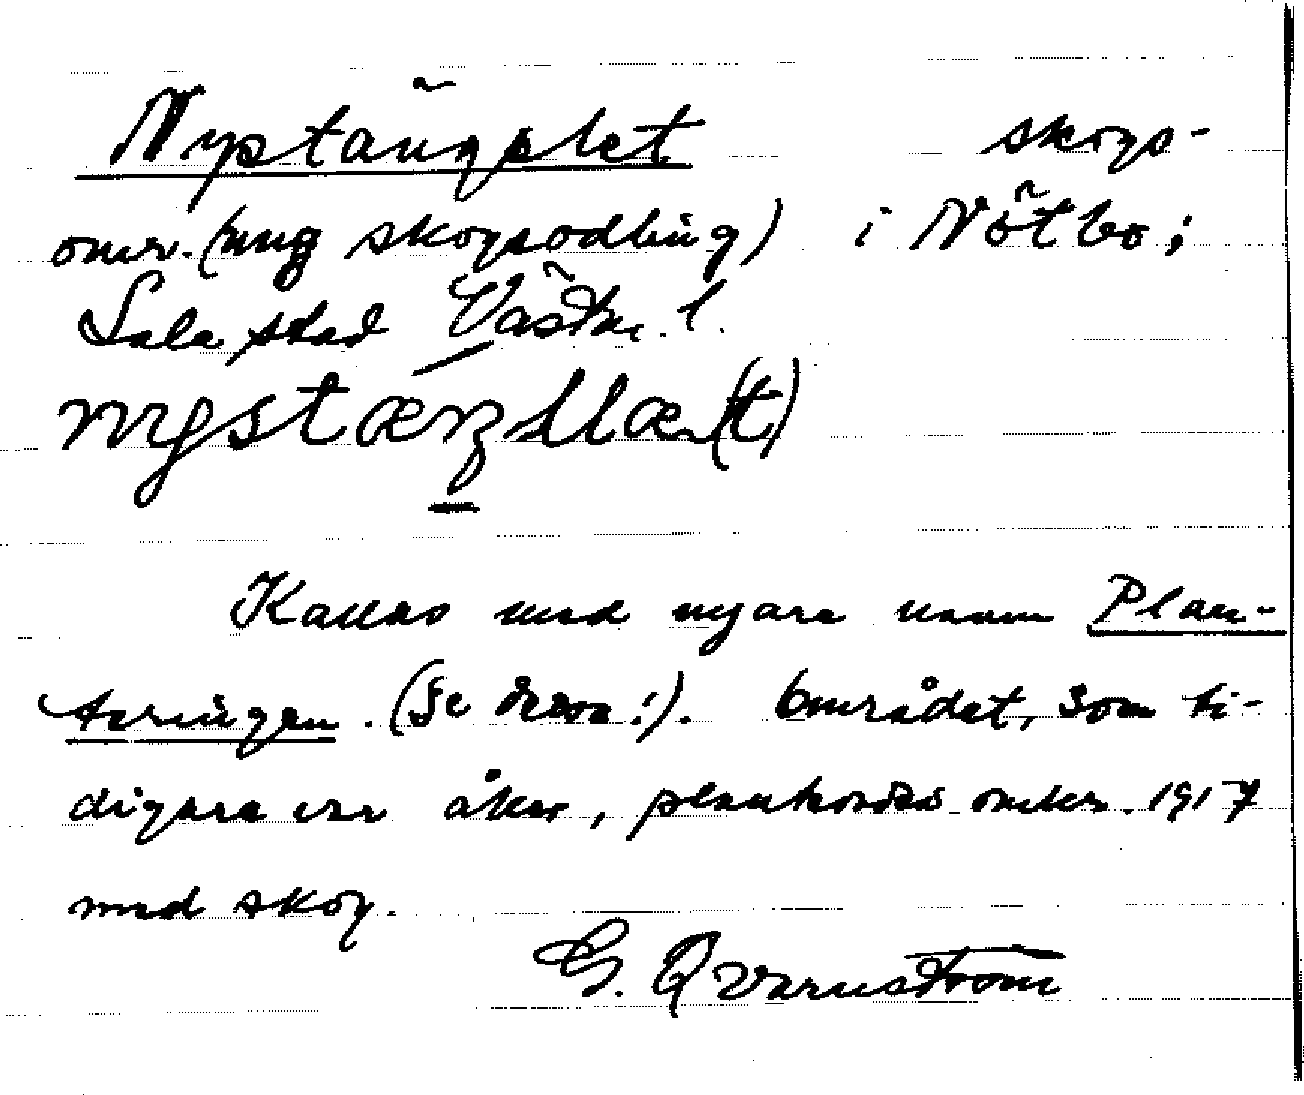 Nystängslet skogs-
omr. (ung skogsodling) i Nötbo;
Sala stad Västm. l.
nystæŋslæ(t)
Kallas med nyare namn Plan-
teringen. (Se detta!). Området, som ti-
digare var åker, planterades omkr. 1917
med skog.
G. Qvarnström